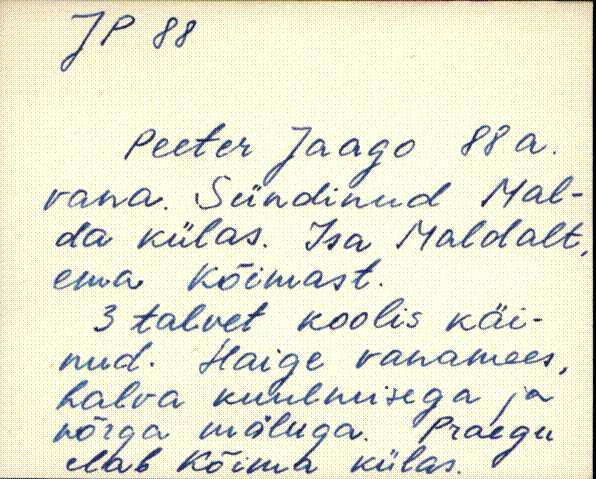 JP 88
Peeter Jaago 88 a.
vana. Sündinud Mal-
da külas. Isa Maldalt,
ema Kõimast.
3 talvet koolis käi-
nud. Haige vanamees,
halva kuulmisega ja
nõrga mäluga. Praegu
elab Kõima külas.